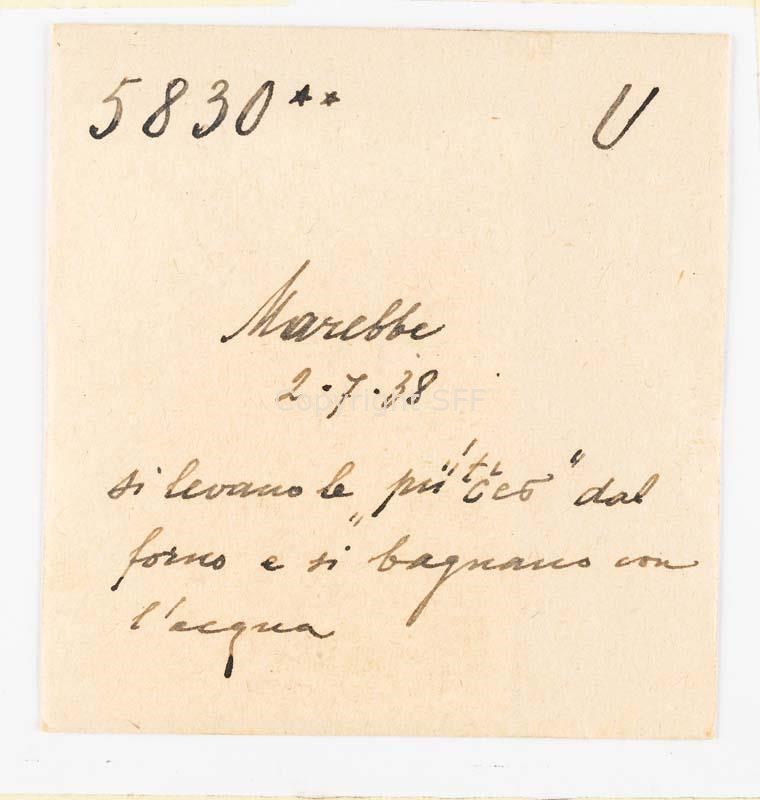 5830** U
Marebbe
2.7.38
Copyright SFF
si levano le „ " dal
forno e si bagnano con
l'acqua